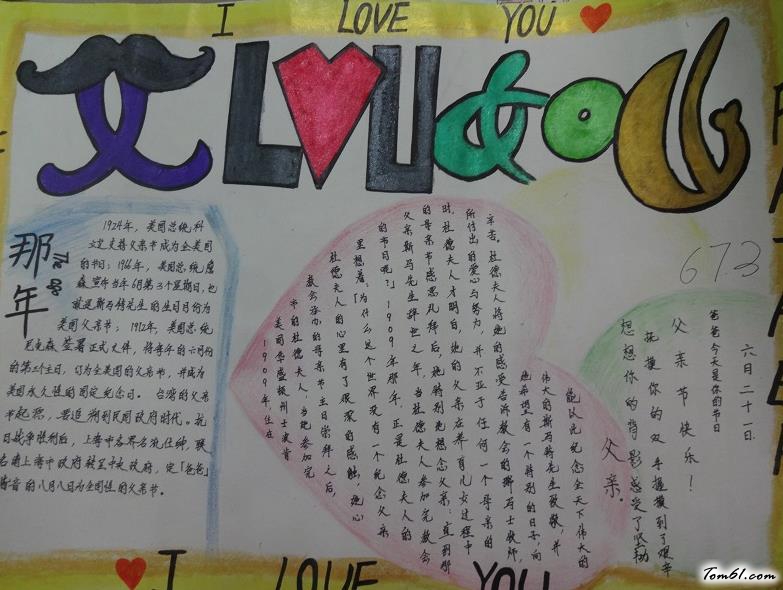 I LOVE YOU
那年
1924年，美国总统科
立芝支持父亲节成为全美国
的节日；1966年，美国总统詹
森宣布当年6月第3个星期日，也
就是斯马特先生的生日月份为
美国父亲节；1972年，美国总统
尼克森签署正式文件，将每年的六月份
的第三个主日，订为全美国的父亲节，并成为
美国永久性的国定纪念日。台湾的父亲
节起源，要追溯到民国政府时代。抗
日战争胜利后，上海市各界名流仕绅，联
名请上海市政府转呈中央政府，定「爸爸」
谐音的八月八日为全国性的父亲节。
辛苦。杜德夫人将她的感受告诉教会的瑞马士牧师，
所付出的爱心与努力，并不亚于任何一个母亲的
时，杜德夫人才明白，她的父亲在养育儿女过程中
的母亲节感恩礼拜后，她特别地想念父亲；直到那
父亲斯马特先生辞世之年，当杜德夫人参加完教会
的节日呢？」1909年那年，正是杜德夫人的
里想着：「为什么这个世界没有一个纪念父亲
杜德夫人的心里有了很深的感触，她心
教会举办的母亲节主日崇拜之后，
市的杜德夫人，当她参加完
美国华盛顿州士波肯
1909年，住在
能以此纪念全天下伟大的
伟大的斯马特先生致敬，并
她希望有一个特别的日子，向
父亲。
673
六月二十一日，
爸爸今天是你的节日
父亲节快乐！
抚摸你的双手握摸到了艰辛
想想你的背影感受了坚韧
I LOVE YOU
Tom61.com